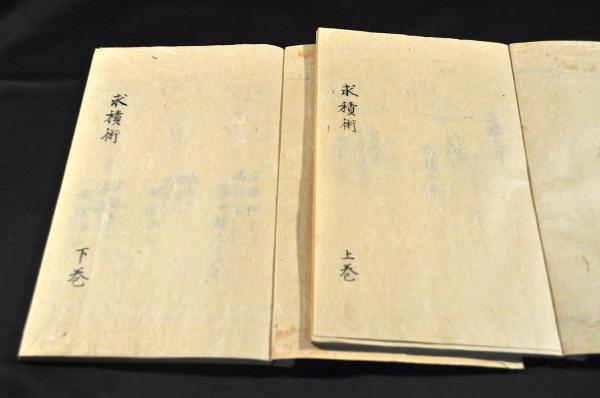 求積術
上巻
求積術
下巻